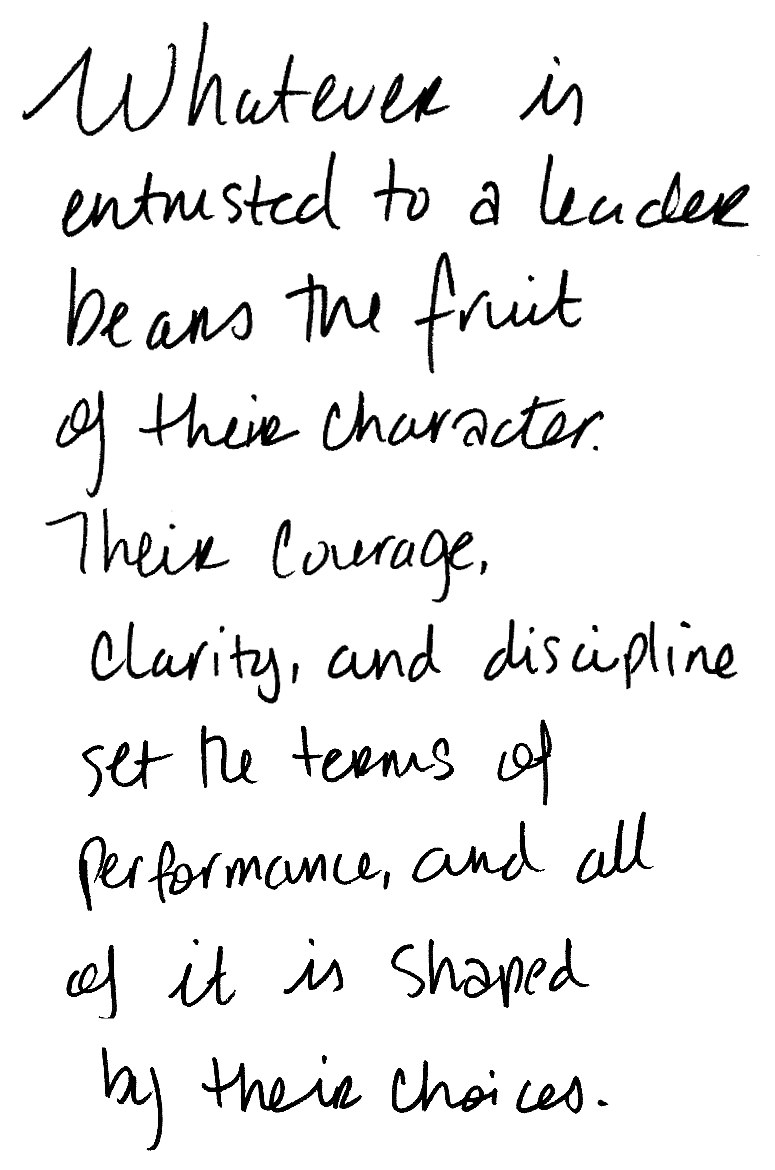 Whatever is
entrusted to a leader
bears the fruit
of their character.
Their courage,
clarity, and discipline
set the terms of
performance, and all
of it is shaped
by their choices.